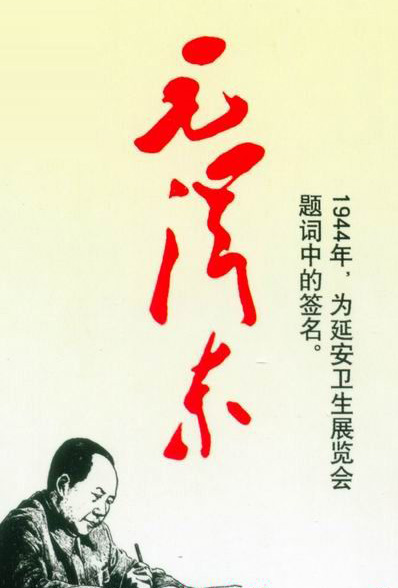 毛泽东
1944年，为延安卫生展览会
题词中的签名。